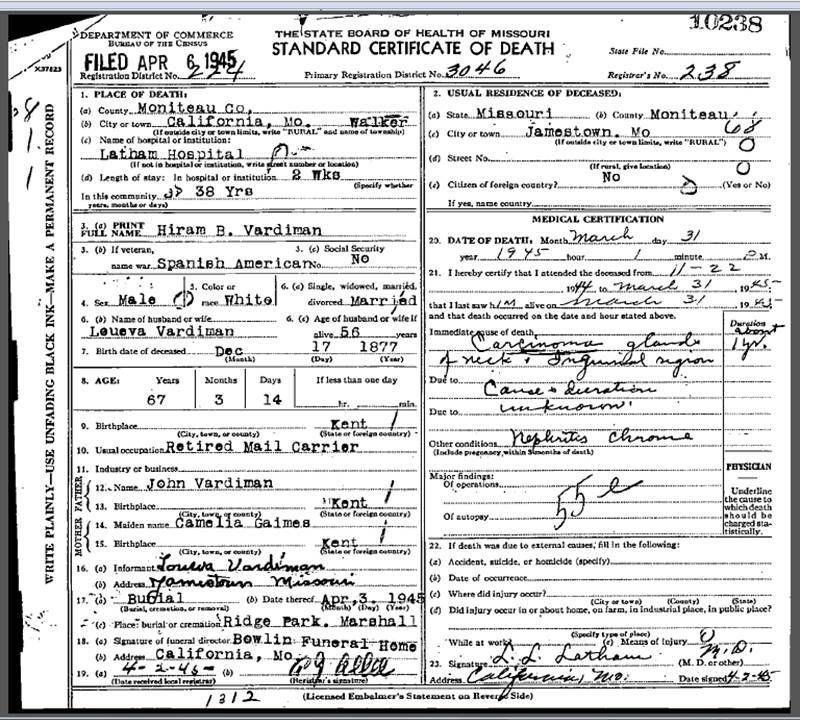 10238
DEPARTMENT OF COMMERCE
BUREAU OF THE CENSUS
THE STATE BOARD OF HEALTH OF MISSOURI
STANDARD CERTIFICATE OF DEATH
State File No.
FILED APR 6, 1945
X37823
Registration District No. 224
Primary Registration District No. 3046
Registrar's No. 238
WRITE PLAINLY—USE UNFADING BLACK INK—MAKE A PERMANENT RECORD
1. PLACE OF DEATH:
(a) County Moniteau Co,
(b) City or town California, Mo. Walker
(If outside city or town limits, write "RURAL" and name of township)
(c) Name of hospital or institution:
Latham Hospital
(If not in hospital or institution, write street number or location)
(d) Length of stay: In hospital or institution 2 Wks
(Specify whether
In this community 38 Yrs
years, months or days)
2. USUAL RESIDENCE OF DECEASED:
(a) State Missouri (b) County Moniteau
(c) City or town Jamestown. Mo 68
(If outside city or town limits, write "RURAL")
0
(d) Street No.
(If rural, give location)
0
(e) Citizen of foreign country? No (Yes or No)
If yes, name country
3. (a) PRINT FULL NAME Hiram B. Vardiman
3. (b) If veteran,
name war Spanish American
3. (c) Social Security
No. No
4. Sex Male
5. Color or
race White
6. (a) Single, widowed, married,
divorced Married
6. (b) Name of husband or wife
Loueva Vardiman
6. (c) Age of husband or wife if
alive 56 years
7. Birth date of deceased Dec 17 1877
(Month) (Day) (Year)
8. AGE: Years Months Days If less than one day
67 3 14 hr. min.
9. Birthplace Kent
(City, town, or county) (State or foreign country)
10. Usual occupation Retired Mail Carrier
11. Industry or business
FATHER
12. Name John Vardiman
13. Birthplace Kent
(City, town, or county) (State or foreign country)
MOTHER
14. Maiden name Camelia Gaimes
15. Birthplace Kent
(City, town, or county) (State or foreign country)
16. (a) Informant Loueva Vardiman
(b) Address Jamestown Missouri
17. (a) Burial (b) Date thereof Apr, 3, 1945
(Burial, cremation, or removal) (Month) (Day) (Year)
(c) Place: burial or cremation Ridge Park. Marshall
18. (a) Signature of funeral director Bowlin Funeral Home
(b) Address California, Mo.
19. (a) 4-2-45 (b)
(Date received local registrar) (Registrar's signature)
MEDICAL CERTIFICATION
20. DATE OF DEATH: Month March day 31
year 1945 hour 1 minute P M.
21. I hereby certify that I attended the deceased from 11-22
1944 to March 31 1945
that I last saw him alive on March 31 1945
and that death occurred on the date and hour stated above.
Duration
Immediate cause of death about
Carcinoma glands 1 yr.
of neck & Inguinal region
Due to Cause & duration
Due to unknown.
Other conditions Nephritis chronic
(Include pregnancy within 3 months of death)
PHYSICIAN
Major findings:
Of operations
55 e
Of autopsy
Underline the cause to which death should be charged statistically.
22. If death was due to external causes, fill in the following:
(a) Accident, suicide, or homicide (specify)
(b) Date of occurrence
(c) Where did injury occur?
(City or town) (County) (State)
(d) Did injury occur in or about home, on farm, in industrial place, in public place?
(Specify type of place)
While at work (e) Means of injury
23. Signature L. L. Latham M.D.
(M. D. or other)
Address California, Mo. Date signed 4-2-45
1312
(Licensed Embalmer's Statement on Reverse Side)